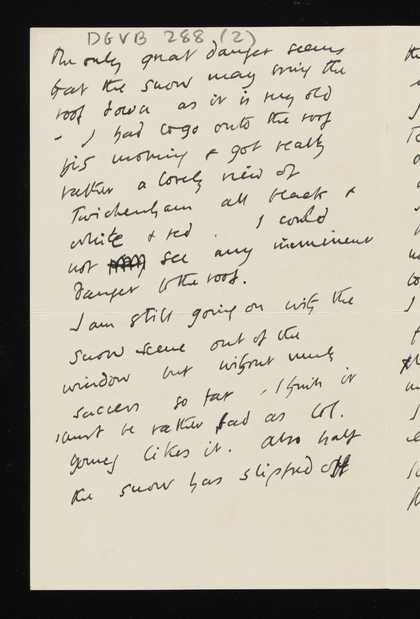 DGVB 288 (2)
The only great danger seems
that the snow may bring the
roof down as it is very old
- I had to go onto the roof
this morning & got really
rather a lovely view of
Twickenham all black &
white & red. I could
not see any imminent
danger to the roof.
I am still going on with the
snow scene out of the
window but without much
success so far, I think it
must be rather bad as Col.
Young likes it. Also half
the snow has slipped off